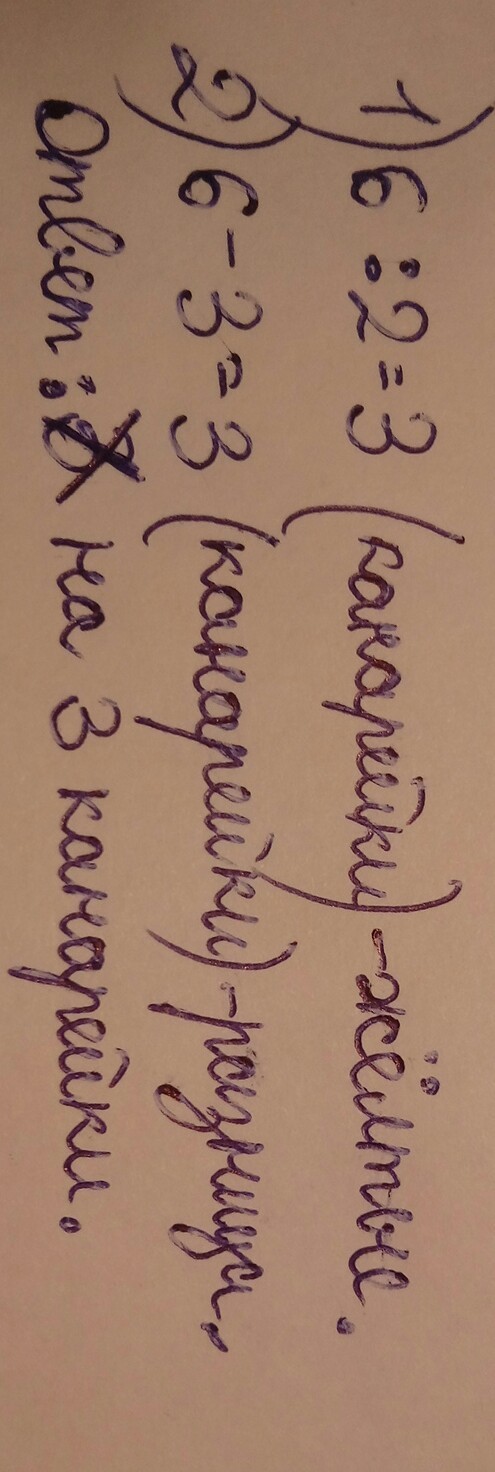 1) 6 : 2 = 3 (канарейки) - жёлтые.
2) 6 - 3 = 3 (канарейки) - разница.
Ответ: на 3 канарейки.